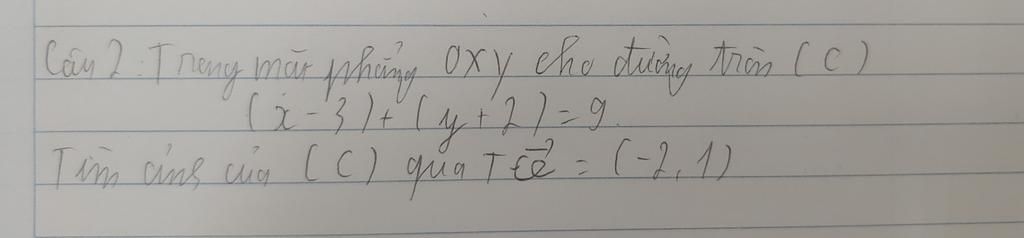 Câu 2: Trong mặt phẳng oxy cho đường tròn (C)
(x-3)+(y+2)=9
Tìm ảnh của (C) qua T = (-2,1)